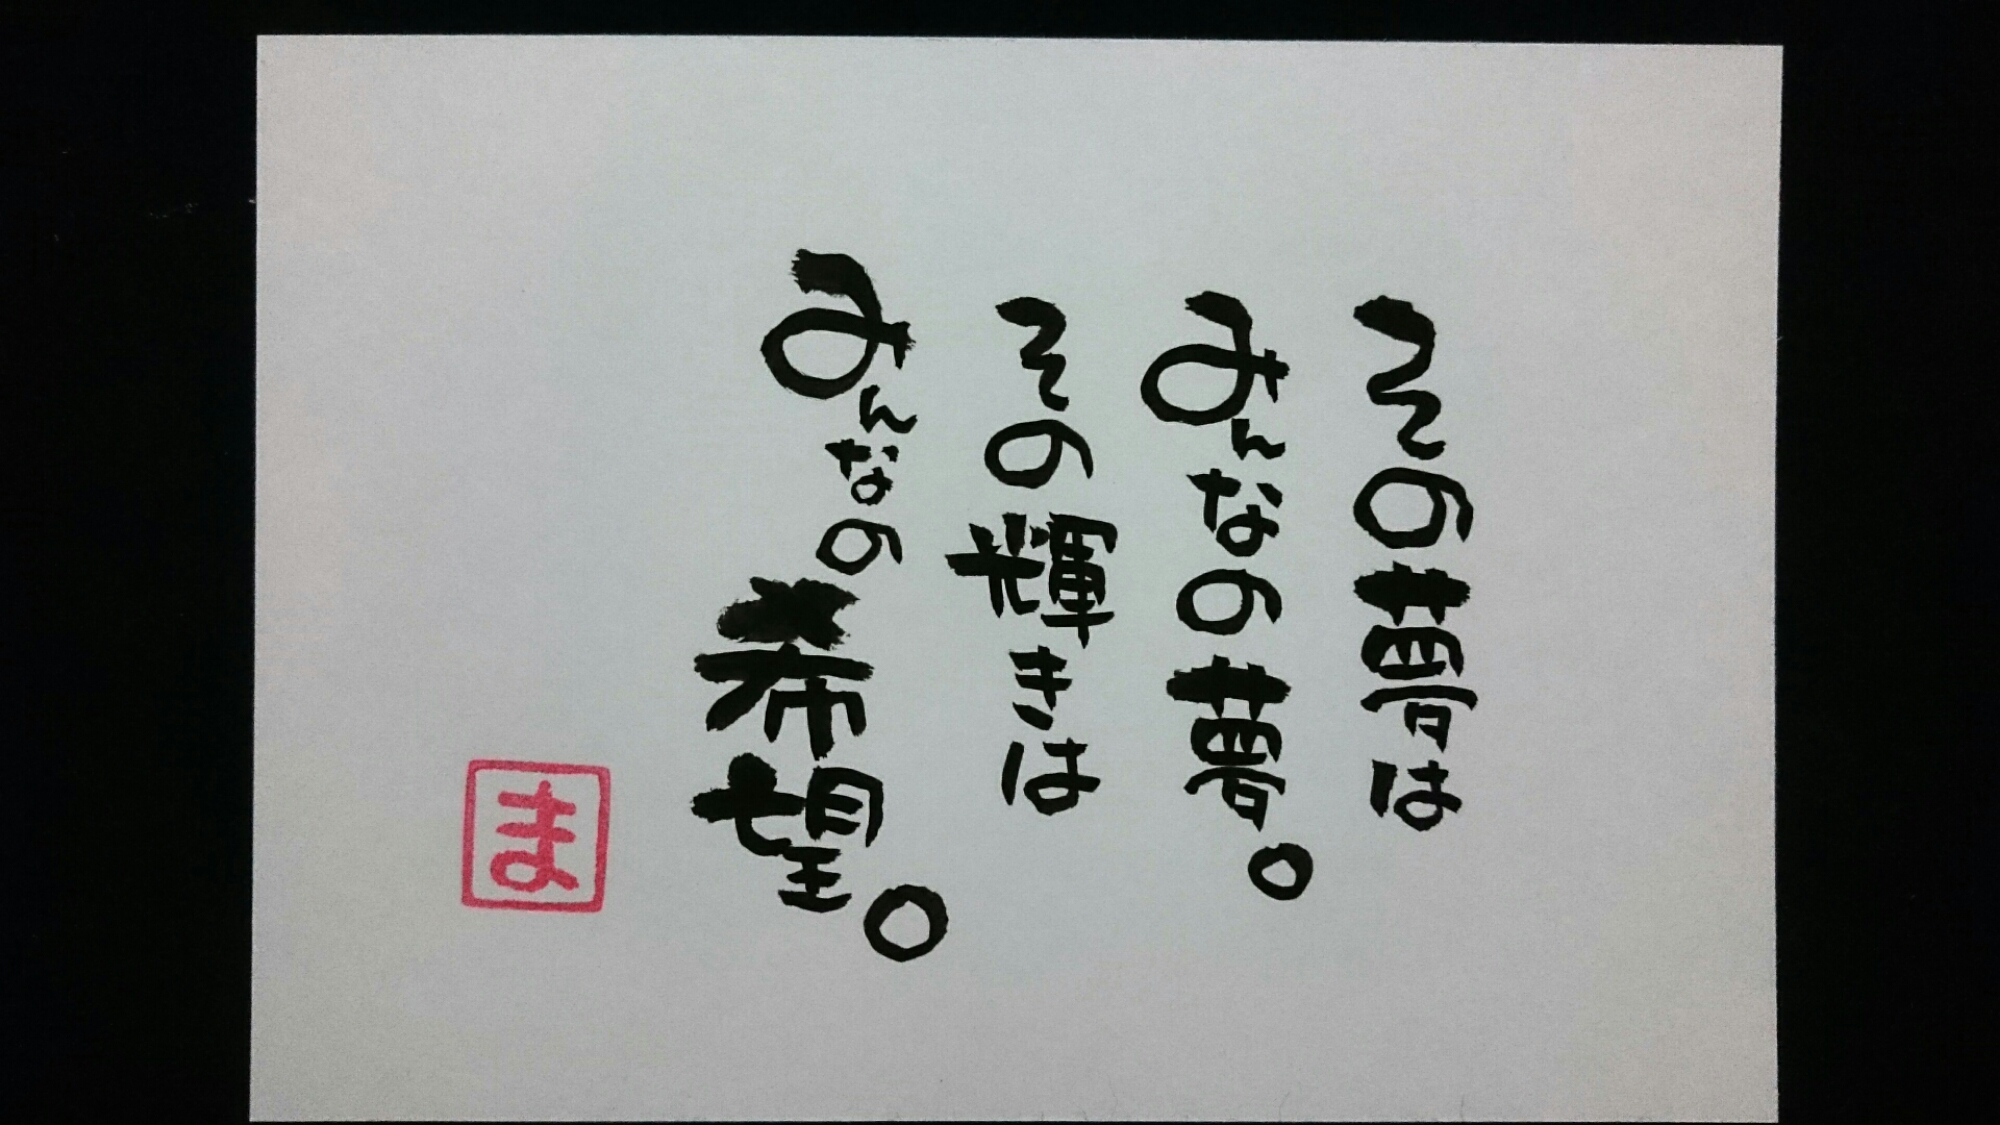 その夢は
みんなの夢。
その輝きは
みんなの希望。
ま